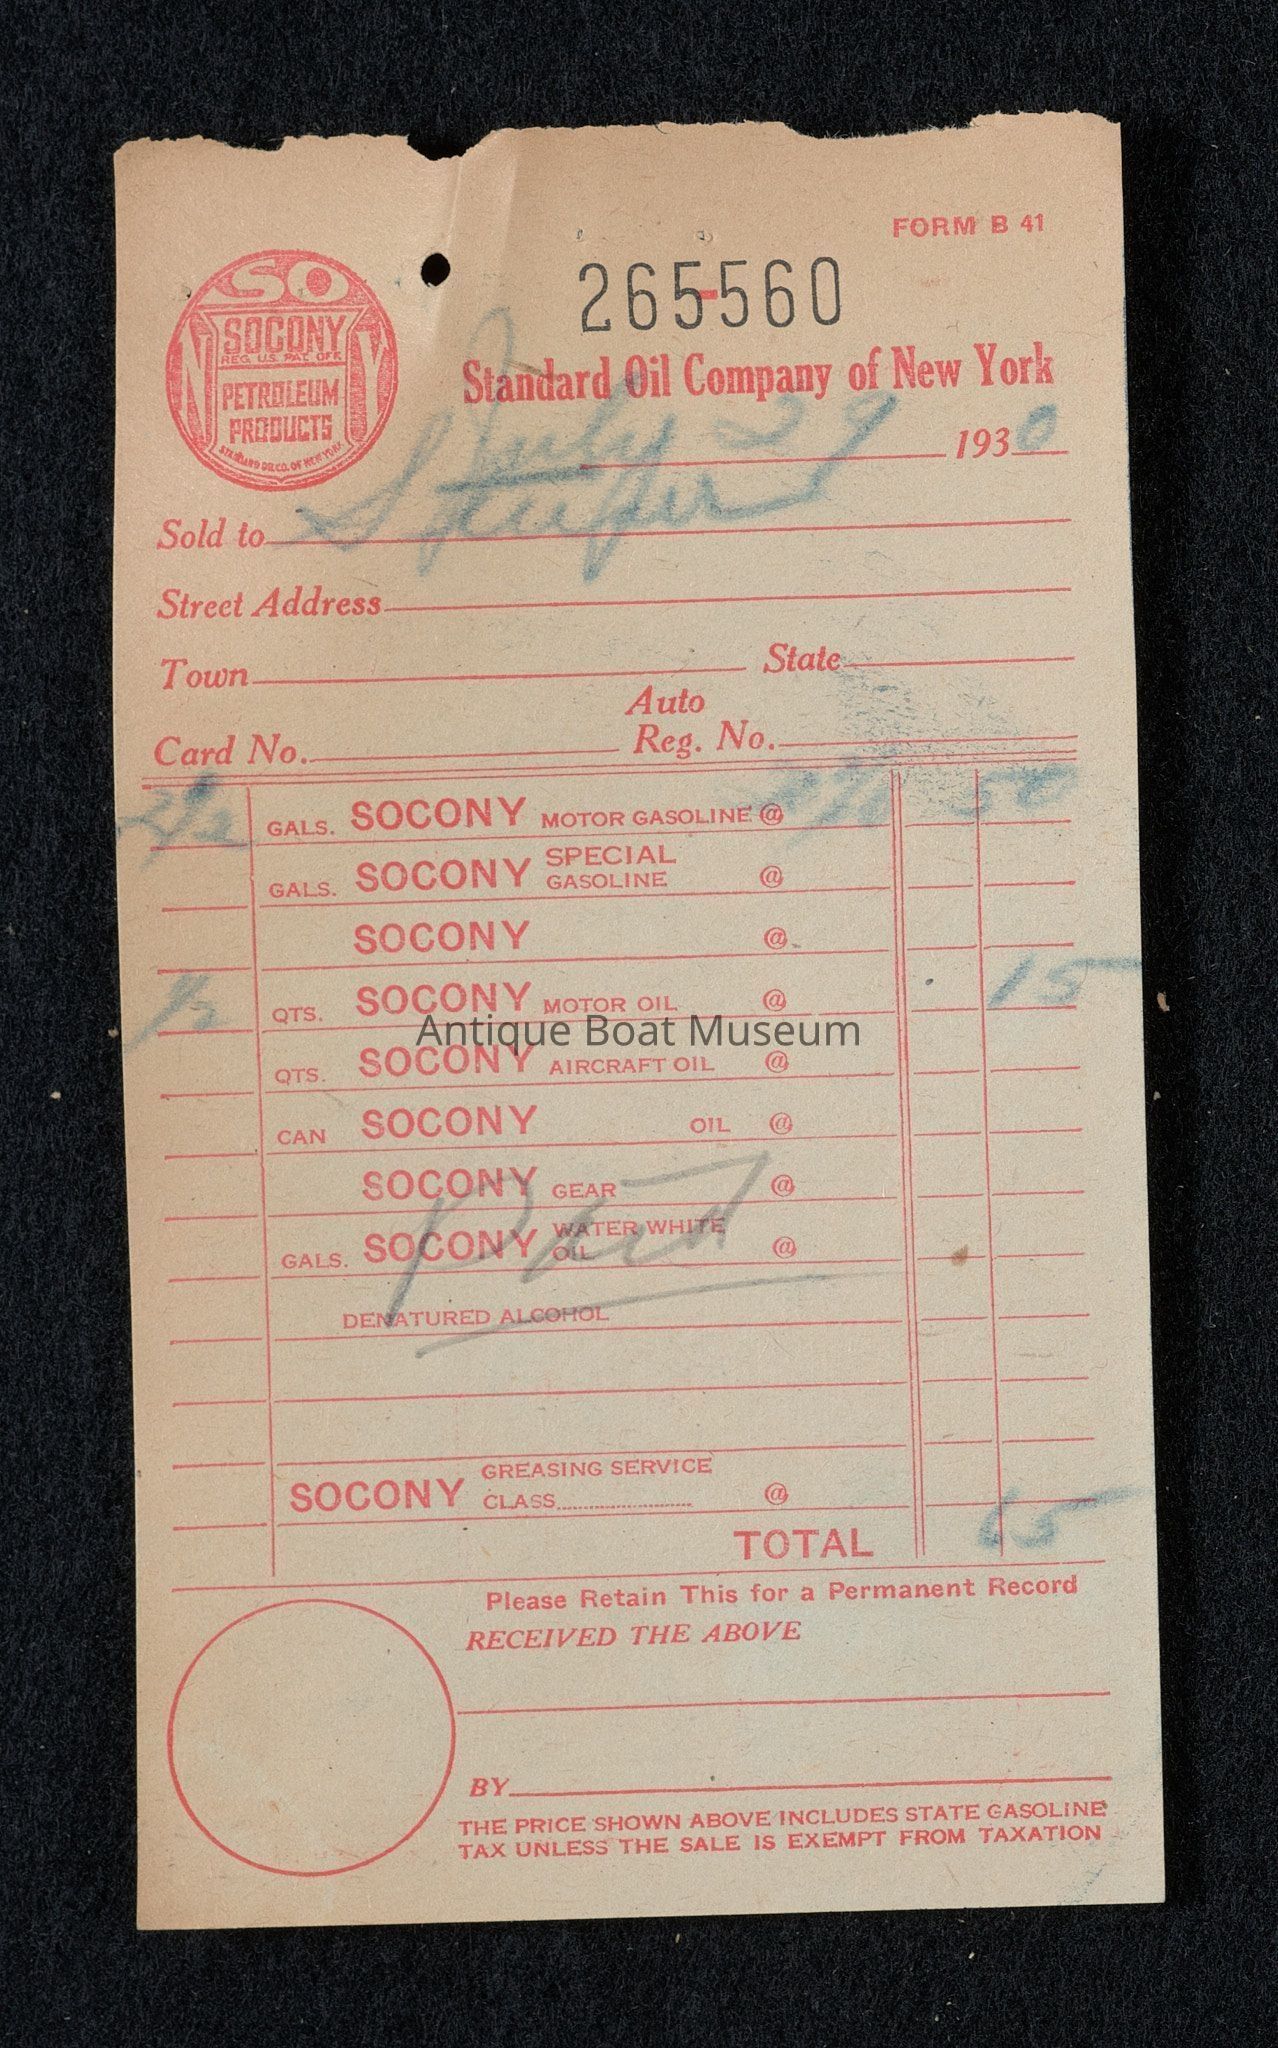 FORM B 41
265-560
SO
NY
SOCONY
REG. U.S. PAT. OFF.
PETROLEUM
PRODUCTS
STANDARD OIL CO. OF NEW YORK
Standard Oil Company of New York
July 29 1930
Sold to
Street Address
Town State
Auto
Card No. Reg. No.
2 1/2 GALS. SOCONY MOTOR GASOLINE @ 50
GALS. SOCONY SPECIAL GASOLINE @
SOCONY @
1/2 QTS. SOCONY MOTOR OIL @ 15
Antique Boat Museum
QTS. SOCONY AIRCRAFT OIL @
CAN SOCONY OIL @
SOCONY GEAR @
GALS. SOCONY WATER WHITE OIL @
Paid
DENATURED ALCOHOL
SOCONY GREASING SERVICE CLASS @
TOTAL 65
Please Retain This for a Permanent Record
RECEIVED THE ABOVE
BY
THE PRICE SHOWN ABOVE INCLUDES STATE GASOLINE
TAX UNLESS THE SALE IS EXEMPT FROM TAXATION